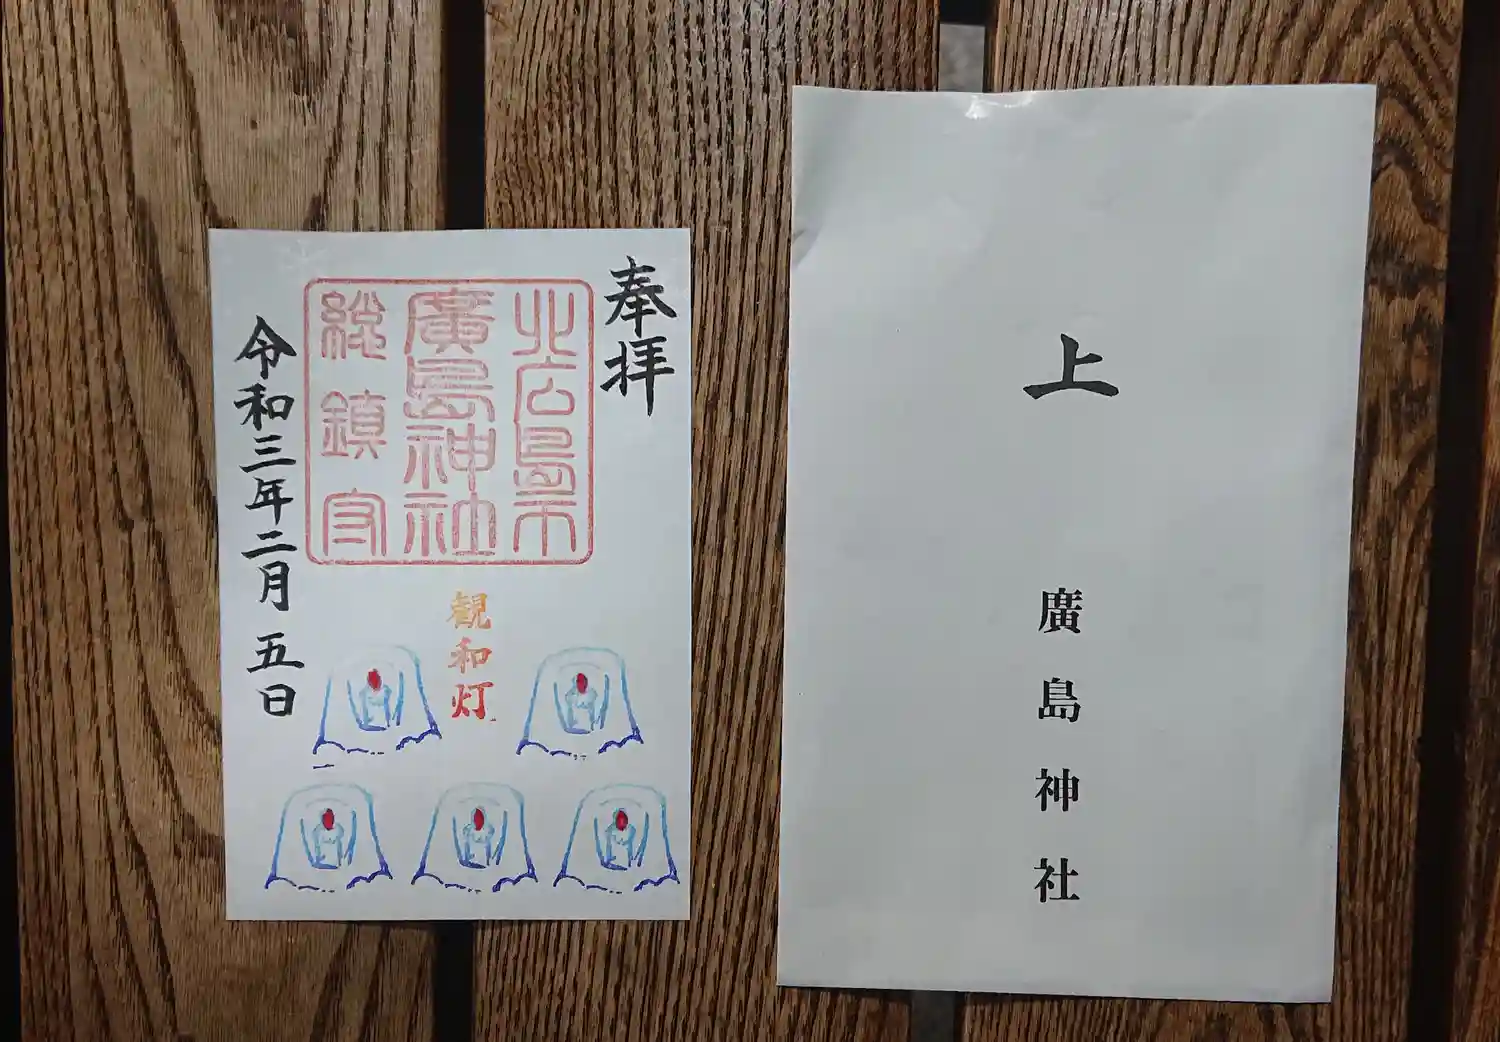 奉拝
北広島市
廣島神社
総鎮守
令和三年二月五日
観和灯
上
廣島神社